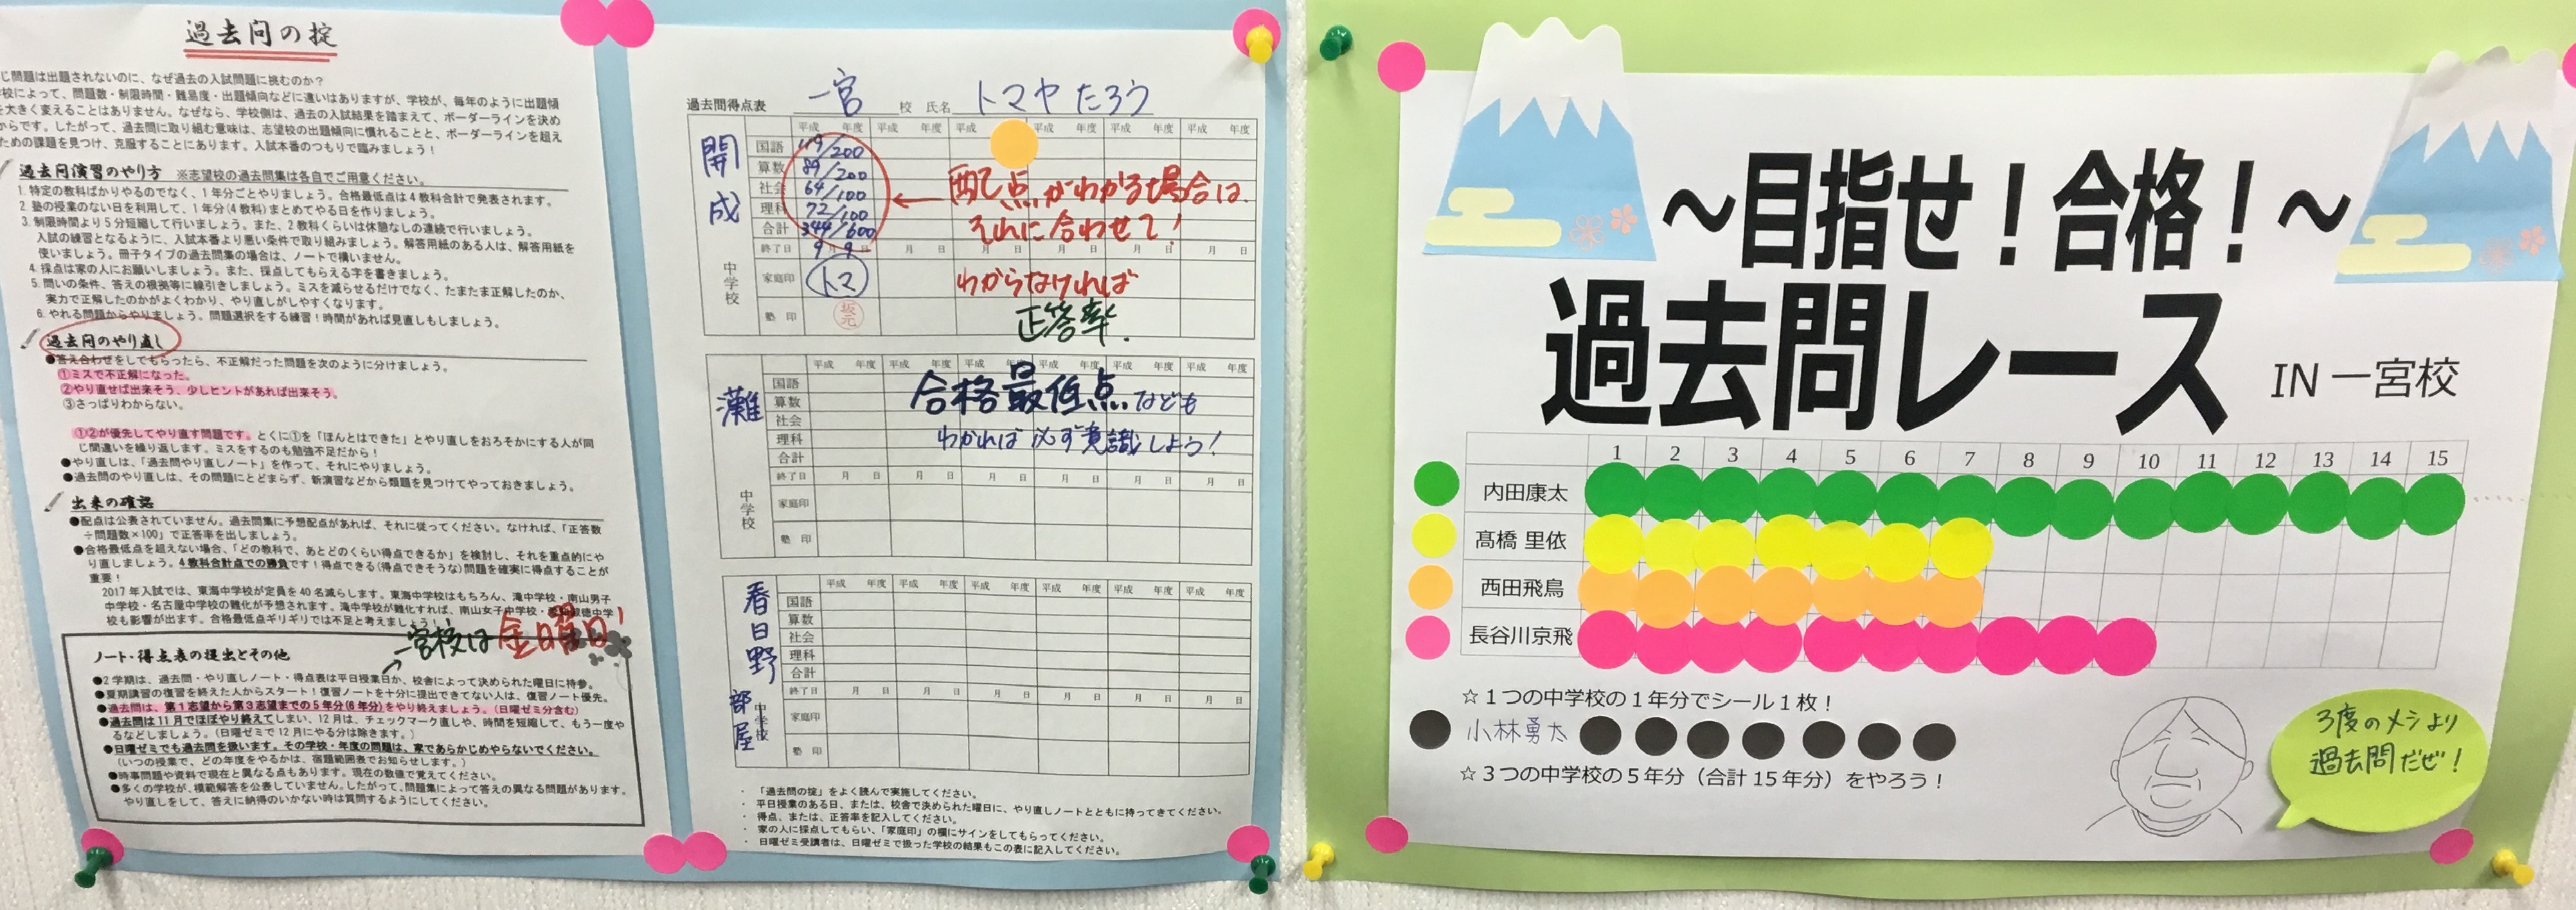 過去問の掟
じ問題は出題されないのに、なぜ過去の入試問題に挑むのか？
校によって、問題数・制限時間・難易度・出題傾向などに違いはありますが、学校が、毎年のように出題傾
を大きく変えることはありません。なぜなら、学校側は、過去の入試結果を踏まえて、ボーダーラインを決め
からです。したがって、過去問に取り組む意味は、志望校の出題傾向に慣れることと、ボーダーラインを超え
ための課題を見つけ、克服することにあります。入試本番のつもりで臨みましょう！
過去問演習のやり方 ※志望校の過去問集は各自でご用意ください。
1. 特定の教科ばかりやるのでなく、1年分ごとやりましょう。合格最低点は4教科合計で発表されます。
2. 塾の授業のない日を利用して、1年分(4教科)まとめてやる日を作りましょう。
3. 制限時間より5分短縮して行いましょう。また、2教科くらいは休憩なしの連続で行いましょう。
入試の練習となるように、入試本番より悪い条件で取り組みましょう。解答用紙のある人は、解答用紙を
使いましょう。冊子タイプの過去問集の場合は、ノートで構いません。
4. 採点は家の人にお願いしましょう。また、採点してもらえる字を書きましょう。
5. 問いの条件、答えの根拠等に線引きしましょう。ミスを減らせるだけでなく、たまたま正解したのか、
実力で正解したのかがよくわかり、やり直しがしやすくなります。
6. やれる問題からやりましょう。問題選択をする練習！時間があれば見直しもしましょう。
過去問のやり直し
●答え合わせをしてもらったら、不正解だった問題を次のように分けましょう。
①ミスで不正解になった。
②やり直せば出来そう、少しヒントがあれば出来そう。
③さっぱりわからない。
①②が優先してやり直す問題です。とくに①を「ほんとはできた」とやり直しをおろそかにする人が同
じ間違いを繰り返します。ミスをするのも勉強不足だから！
●やり直しは、「過去問やり直しノート」を作って、それにやりましょう。
●過去問のやり直しは、その問題にとどまらず、新演習などから類題を見つけてやっておきましょう。
出来の確認
●配点は公表されていません。過去問集に予想配点があれば、それに従ってください。なければ、「正答数
÷問題数×100」で正答率を出しましょう。
●合格最低点を超えない場合、「どの教科で、あとどのくらい得点できるか」を検討し、それを重点的にや
り直しましょう。4教科合計点での勝負です！得点できる(得点できそうな)問題を確実に得点することが
重要！
2017年入試では、東海中学校が定員を40名減らします。東海中学校はもちろん、滝中学校・南山男子
中学校・名古屋中学校の難化が予想されます。滝中学校が難化すれば、南山女子中学校・愛知淑徳中学
校も影響が出ます。合格最低点ギリギリでは不足と考えましょう！
一宮校は 金曜日！
ノート・得点表の提出とその他
●2学期は、過去問・やり直しノート・得点表は平日授業日か、校舎によって決められた曜日に持参。
●夏期講習の復習を終えた人からスタート！復習ノートを十分に提出できてない人は、復習ノート優先。
●過去問は、第1志望から第3志望までの5年分(6年分)をやり終えましょう。(日曜ゼミ分含む)
●過去問は11月でほぼやり終えてしまい、12月は、チェックマーク直しや、時間を短縮して、もう一度や
るなどしましょう。(日曜ゼミで12月にやる分は除きます。)
●日曜ゼミでも過去問を扱います。その学校・年度の問題は、家であらかじめやらないでください。
(いつの授業で、どの年度をやるかは、宿題範囲表でお知らせします。)
●時事問題や資料で現在と異なる点もあります。現在の数値で覚えてください。
●多くの学校が、模範解答を公表していません。したがって、問題集によって答えの異なる問題があります。
やり直しをして、答えに納得のいかない時は質問するようにしてください。
過去問得点表 一宮 校 氏名 トマヤ たろう
平成 年度 平成 年度 平成 平成 年度 平成 年度 平成 年度
開成 中学校
国語 119/200
算数 89/200
社会 64/100
理科 72/100
合計 344/600
終了日 9月9日 月 日 月 日 月 日 月 日 月 日
家庭印 トマ
塾印 坂元
配点がわかる場合は
それに合わせて！
わからなければ
正答率.
平成 年度 平成 年度 平成 年度 平成 年度 平成 年度 平成 年度
灘 中学校
国語
算数
社会
理科
合計
終了日 月 日 月 日 月 日 月 日 月 日 月 日
家庭印
塾印
合格最低点なども
わかれば 必ず意識しよう！
平成 年度 平成 年度 平成 年度 平成 年度 平成 年度 平成 年度
春日野部屋 中学校
国語
算数
社会
理科
合計
終了日 月 日 月 日 月 日 月 日 月 日 月 日
家庭印
塾印
・「過去問の掟」をよく読んで実施してください。
・平日授業のある日、または、校舎で決められた曜日に、やり直しノートとともに持ってきてください。
・得点、または、正答率を記入してください。
・家の人に採点してもらい、「家庭印」の欄にサインをしてもらってください。
・日曜ゼミ受講者は、日曜ゼミで扱った学校の結果もこの表に記入してください。
～目指せ！合格！～
過去問レース IN 一宮校
1 2 3 4 5 6 7 8 9 10 11 12 13 14 15
内田康太
髙橋 里依
西田飛鳥
長谷川京飛
☆１つの中学校の１年分でシール１枚！
小林勇太
☆３つの中学校の５年分（合計15年分）をやろう！
3度のメシより
過去問だぜ！